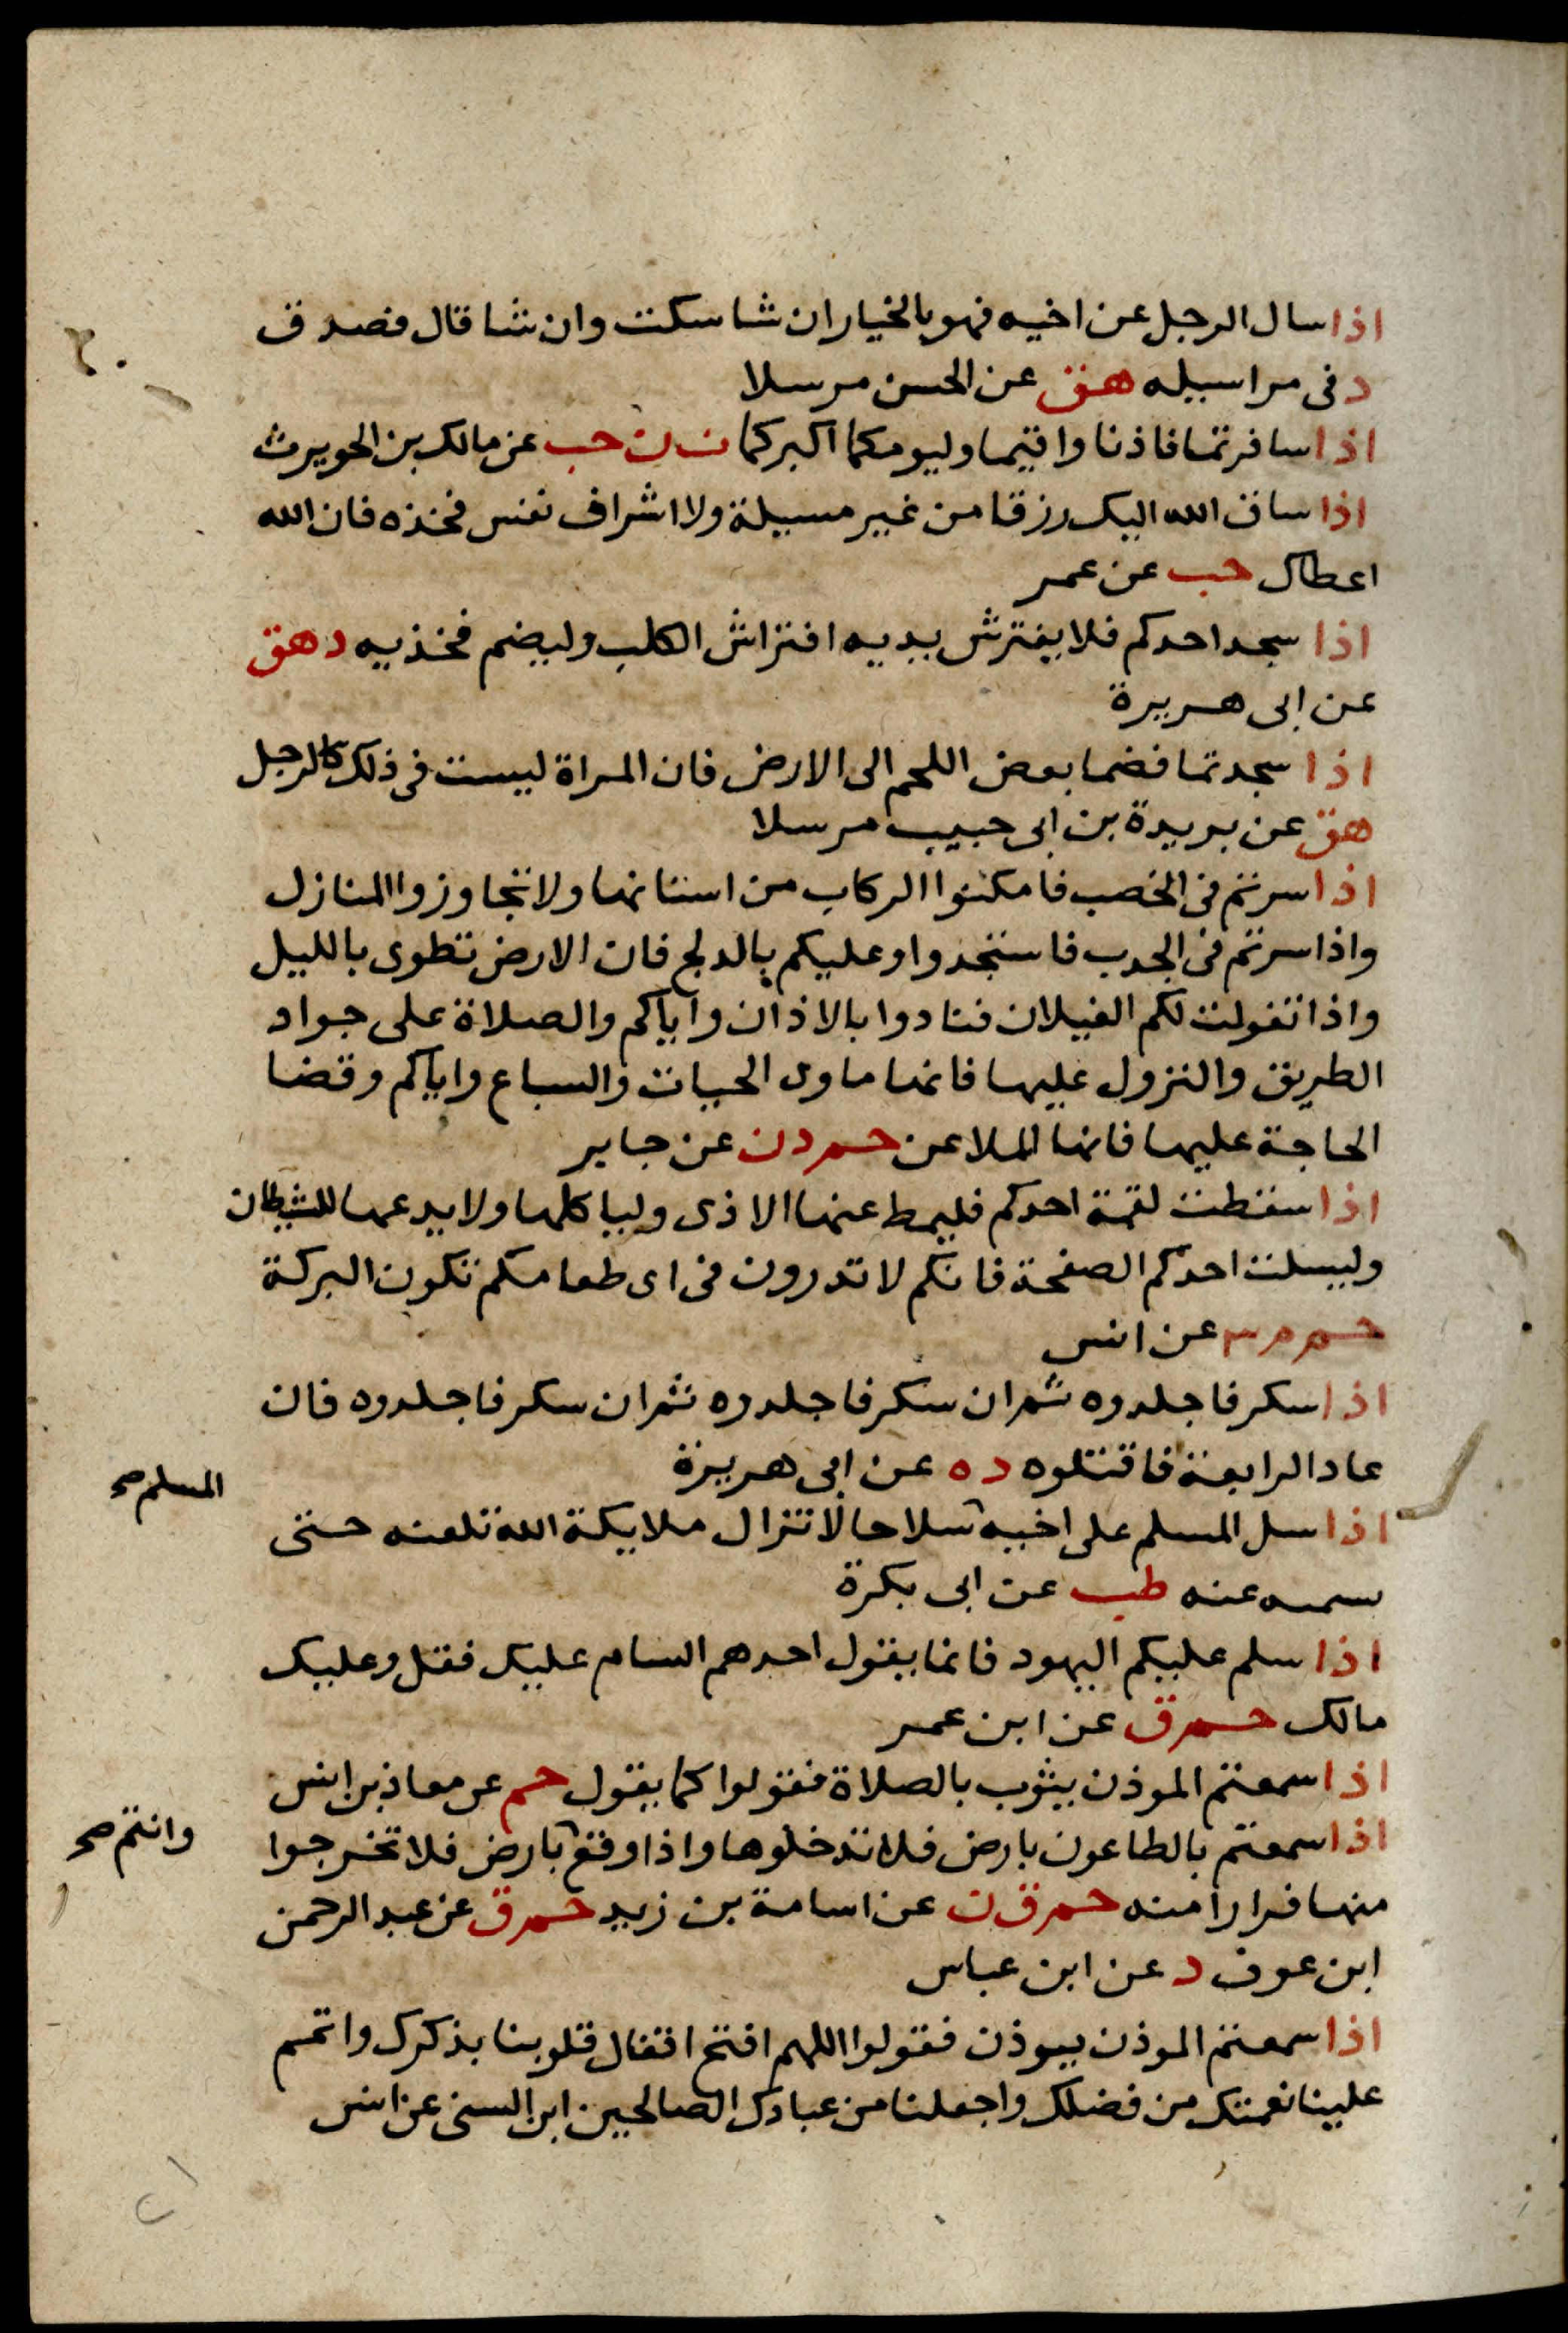 اذا سال الرجل عن اخيه فهو بالخيار ان شا سكت وان شا قال فصدق
د فى مراسيله هق عن الحسن مرسلا
اذا سافرتما فاذنا واقيما وليومكما اكبركما ت ن حب عن مالك بن الحويرث
اذا ساق الله اليك رزقا من غير مسيلة ولا اشراف نفس فخذه فان الله
اعطاك حب عن عمر
اذا سجد احدكم فلا يفترش يديه افتراش الكلب وليضم فخذيه د هق
عن ابى هريرة
اذا سجدتما فضما بعض اللحم الى الارض فان المراة ليست فى ذلك كالرجل
هق عن بريدة بن ابى حبيب مرسلا
اذا سرتم فى الخصب فامكنوا الركاب من اسنانها ولا تتجاوزوا المنازل
واذا سرتم فى الجدب فاستجدوا وعليكم بالدلج فان الارض تطوى بالليل
واذا تغولت لكم الغيلان فنادوا بالاذان واياكم والصلاة على جواد
الطريق والنزول عليها فانها ماوى الحيات والسباع واياكم وقضا
الحاجة عليها فانها الملاعن حم د ن عن جابر
اذا سقطت لقمة احدكم فليمط عنها الاذى ولياكلها ولا يدعها للشيطان
وليسلت احدكم الصفحة فانكم لا تدرون فى اى طعامكم تكون البركة
حم م ٣ عن انس
اذا سكر فاجلدوه ثم ان سكر فاجلدوه ثم ان سكر فاجلدوه فان
عاد الرابعة فاقتلوه د ه عن ابى هريرة
المسلم صح
اذا سل المسلم على اخيه سلاحا لا تزال ملايكة الله تلعنه حتى
عنه طب عن ابى بكرة
اذا سلم عليكم اليهود فانما يقول احدهم السام عليك فقل وعليك
مالك حم ق عن ابن عمر
اذا سمعتم الموذن يثوب بالصلاة فقولوا كما يقول حم عن معاذ بن انس
وانتم صح
اذا سمعتم بالطاعون بارض فلا تدخلوها واذا وقع بارض فلا تخرجوا
منها فرارا منه حم ق ن عن اسامة بن زيد حم ق عن عبد الرحمن
ابن عوف د عن ابن عباس
اذا سمعتم الموذن يوذن فقولوا اللهم افتح اقفال قلوبنا بذكرك واتمم
علينا نعمتك من فضلك واجعلنا من عبادك الصالحين ابن السنى عن انس